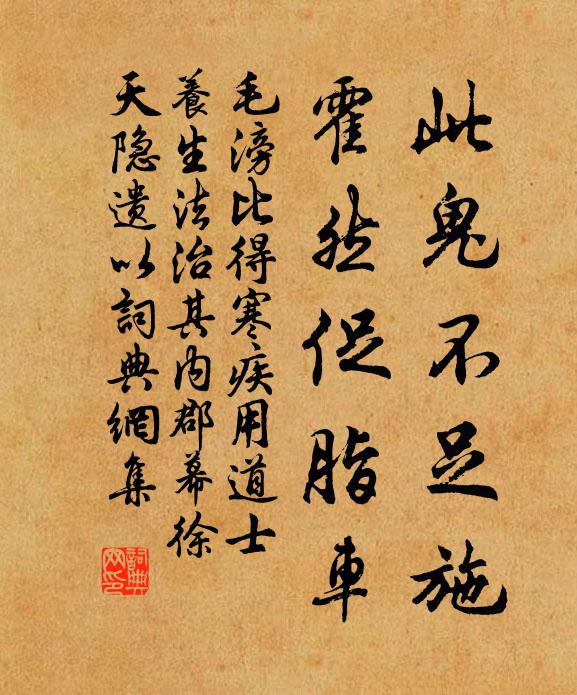 此鬼不足施
霍然促脂車
毛滂比得寒疾用道士
養生法治其内郡幕徐
天隐遗以詞典網集
詞典网印